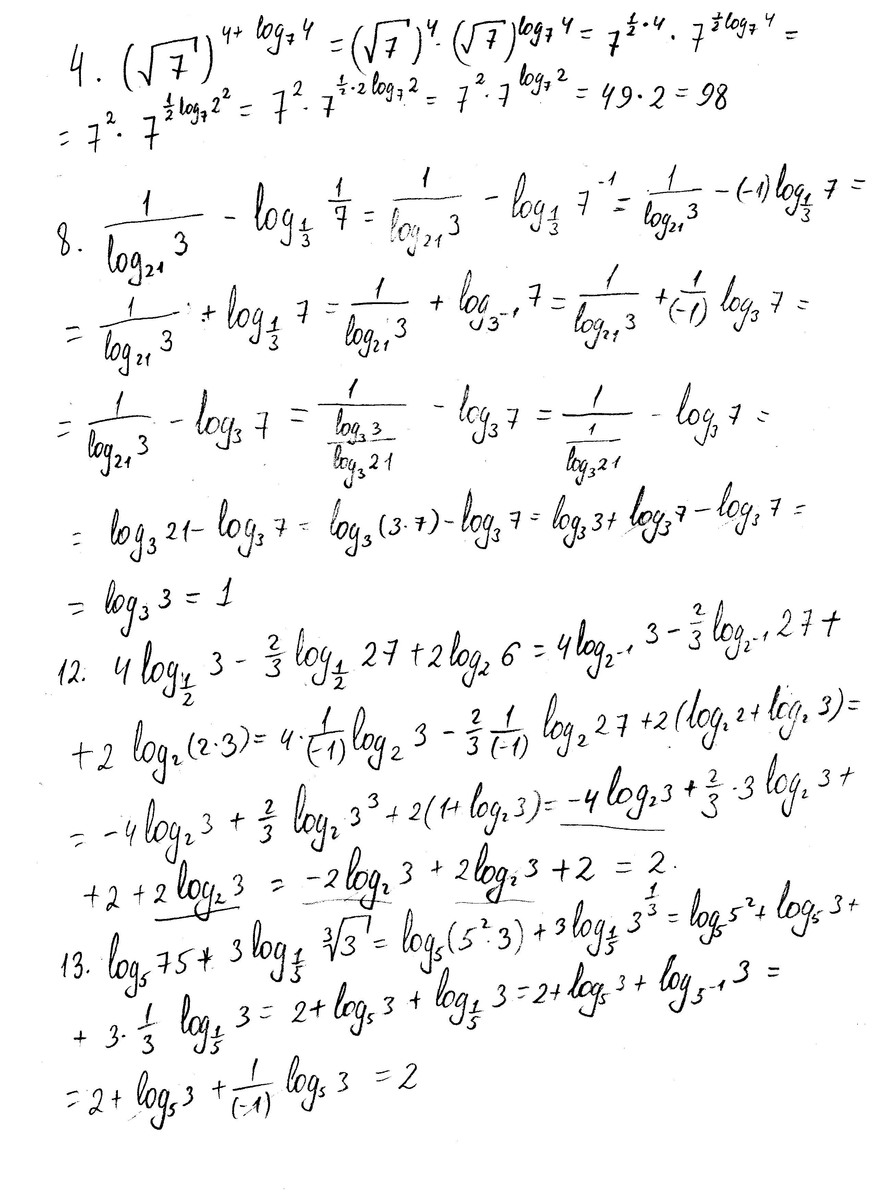 4. (√7)^(4+log₇4) = (√7)^4 · (√7)^(log₇4) = 7^(1/2·4) · 7^(1/2 log₇4) =
= 7² · 7^(1/2 log₇2²) = 7² · 7^(1/2·2 log₇2) = 7² · 7^(log₇2) = 49·2 = 98
8. 1/(log₂₁3) - log_(1/3) 1/7 = 1/(log₂₁3) - log_(1/3) 7^(-1) = 1/(log₂₁3) - (-1)log_(1/3) 7 =
= 1/(log₂₁3) + log_(1/3) 7 = 1/(log₂₁3) + log_(3^(-1)) 7 = 1/(log₂₁3) + 1/(-1) log₃7 =
= 1/(log₂₁3) - log₃7 = 1/((log₃3)/(log₃21)) - log₃7 = 1/(1/(log₃21)) - log₃7 =
= log₃21 - log₃7 = log₃(3·7) - log₃7 = log₃3 + log₃7 - log₃7 =
= log₃3 = 1
12. 4log_(1/2) 3 - 2/3 log_(1/2) 27 + 2log₂6 = 4log_(2^(-1)) 3 - 2/3 log_(2^(-1)) 27 +
+ 2 log₂(2·3) = 4·1/(-1) log₂3 - 2/3 1/(-1) log₂27 + 2(log₂2 + log₂3) =
= -4log₂3 + 2/3 log₂3³ + 2(1+log₂3) = -4log₂3 + 2/3·3 log₂3 +
+ 2 + 2log₂3 = -2log₂3 + 2log₂3 + 2 = 2.
13. log₅75 + 3log_(1/5) ∛3 = log₅(5²·3) + 3log_(1/5) 3^(1/3) = log₅5² + log₅3 +
+ 3·1/3 log_(1/5) 3 = 2 + log₅3 + log_(1/5) 3 = 2 + log₅3 + log_(5^(-1)) 3 =
= 2 + log₅3 + 1/(-1) log₅3 = 2